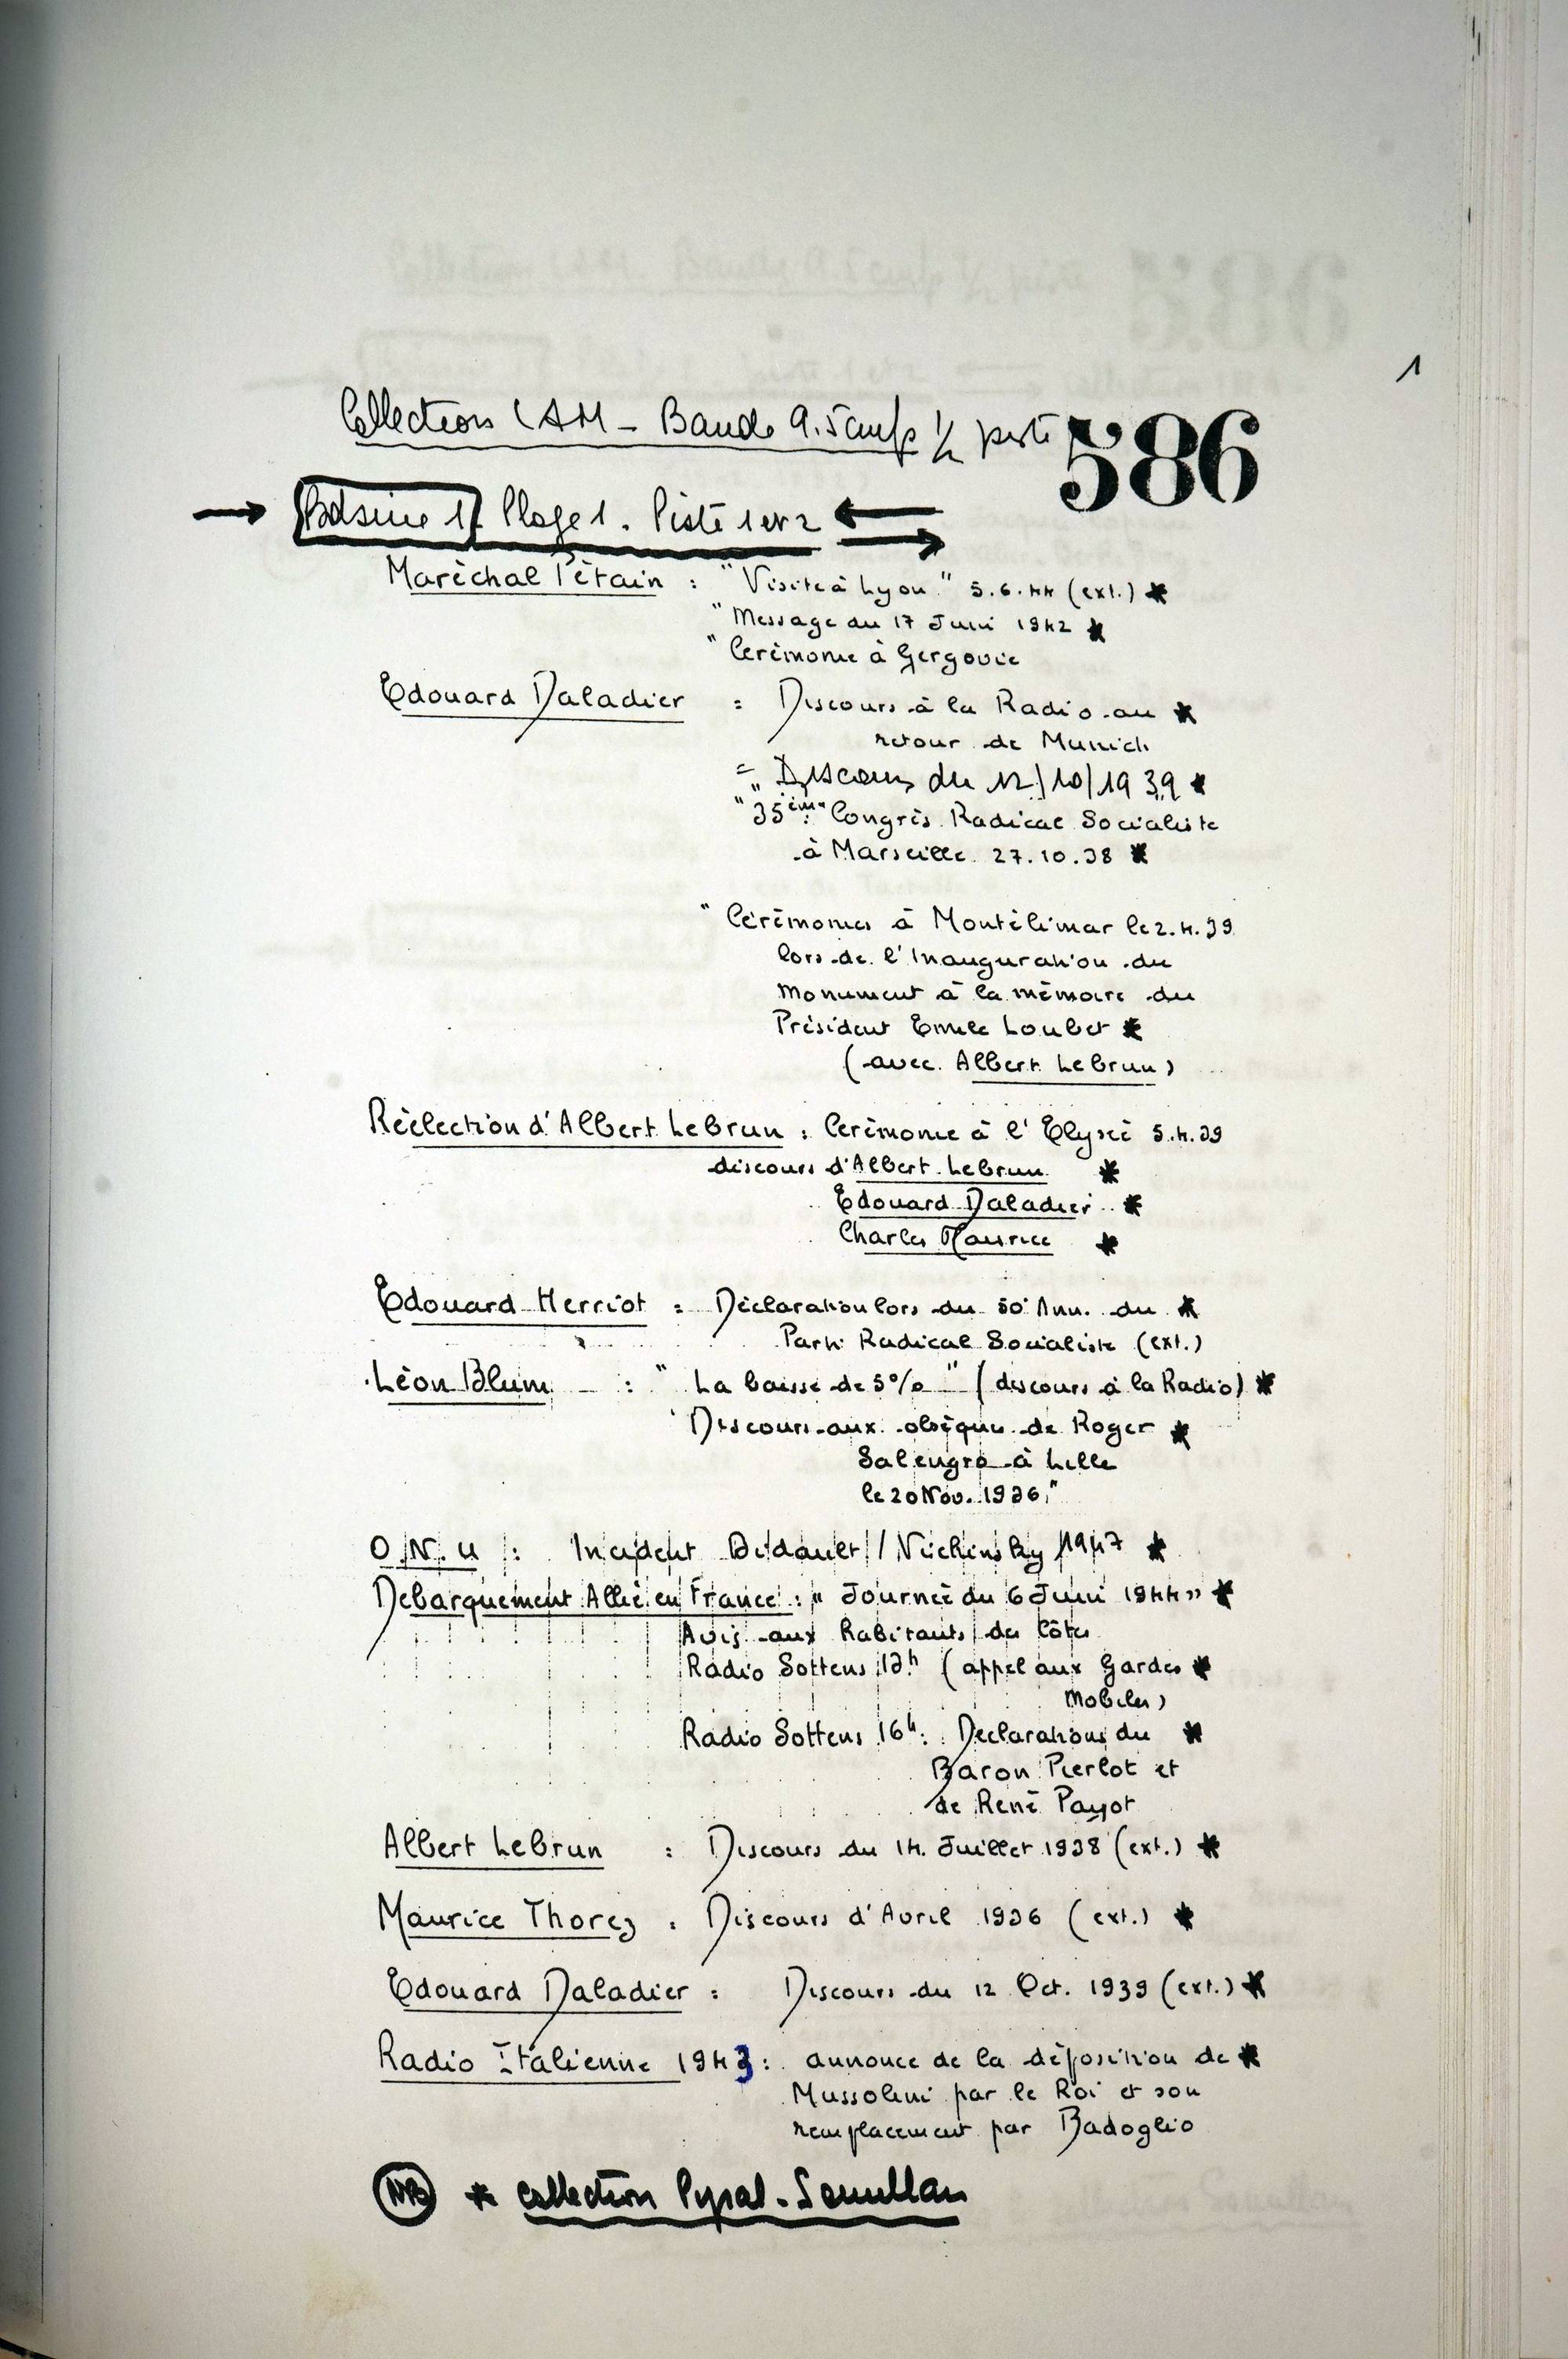 1
Collections CAM - Bande 9.5cm/s 1/2 piste
586
→ Bobine 1. Plage 1. Piste 1 et 2
Maréchal Pétain : "Visite à Lyon." 5.6.44 (ext.) *
"Message du 17 Juin 1942 *
"Cérémonie à Gergovie
Edouard Daladier : Discours à la Radio au *
retour de Munich
= Discours du 12/10/1939 *
"35ème" Congrès Radical Socialiste
à Marseille 27.10.38 *
"Cérémonies à Montélimar le 2.4.39
lors de l'Inauguration du
Monument à la mémoire du
Président Emile Loubet *
(avec Albert Lebrun)
Réélection d'Albert Lebrun : Cérémonie à l'Elysée 5.4.39
discours d'Albert Lebrun *
Edouard Daladier *
Charles Maurice *
Edouard Herriot : Déclaration lors du 50' Ann. du *
Parti Radical Socialiste (ext.)
Léon Blum : "La baisse de 5%" (discours à la Radio) *
Discours aux obsèques de Roger *
Salengro à Lille
le 20 Nov. 1936."
O.N.U : Incident Bidault / Vichinsky 1947 *
Debarquement Allié en France : "Journée du 6 Juin 1944" *
Avis aux habitants des Côtes
Radio Sottens 13h (appel aux Gardes *
Mobiles)
Radio Sottens 16h: Déclarations du *
Baron Pierlot et
de René Payot
Albert Lebrun : Discours du 14 Juillet 1938 (ext.) *
Maurice Thorez : Discours d'Avril 1936 (ext.) *
Edouard Daladier : Discours du 12 Oct. 1939 (ext.) *
Radio Italienne 1943 : annonce de la déposition de *
Mussolini par le Roi et son
remplacement par Badoglio
NB * collection Pyral-